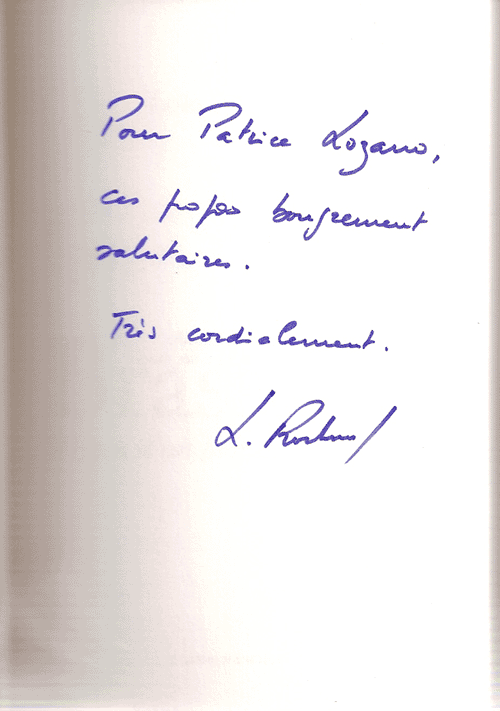 Pour Patrice Lozano,
ces propos bougrement
salutaires.
Très cordialement.
L.